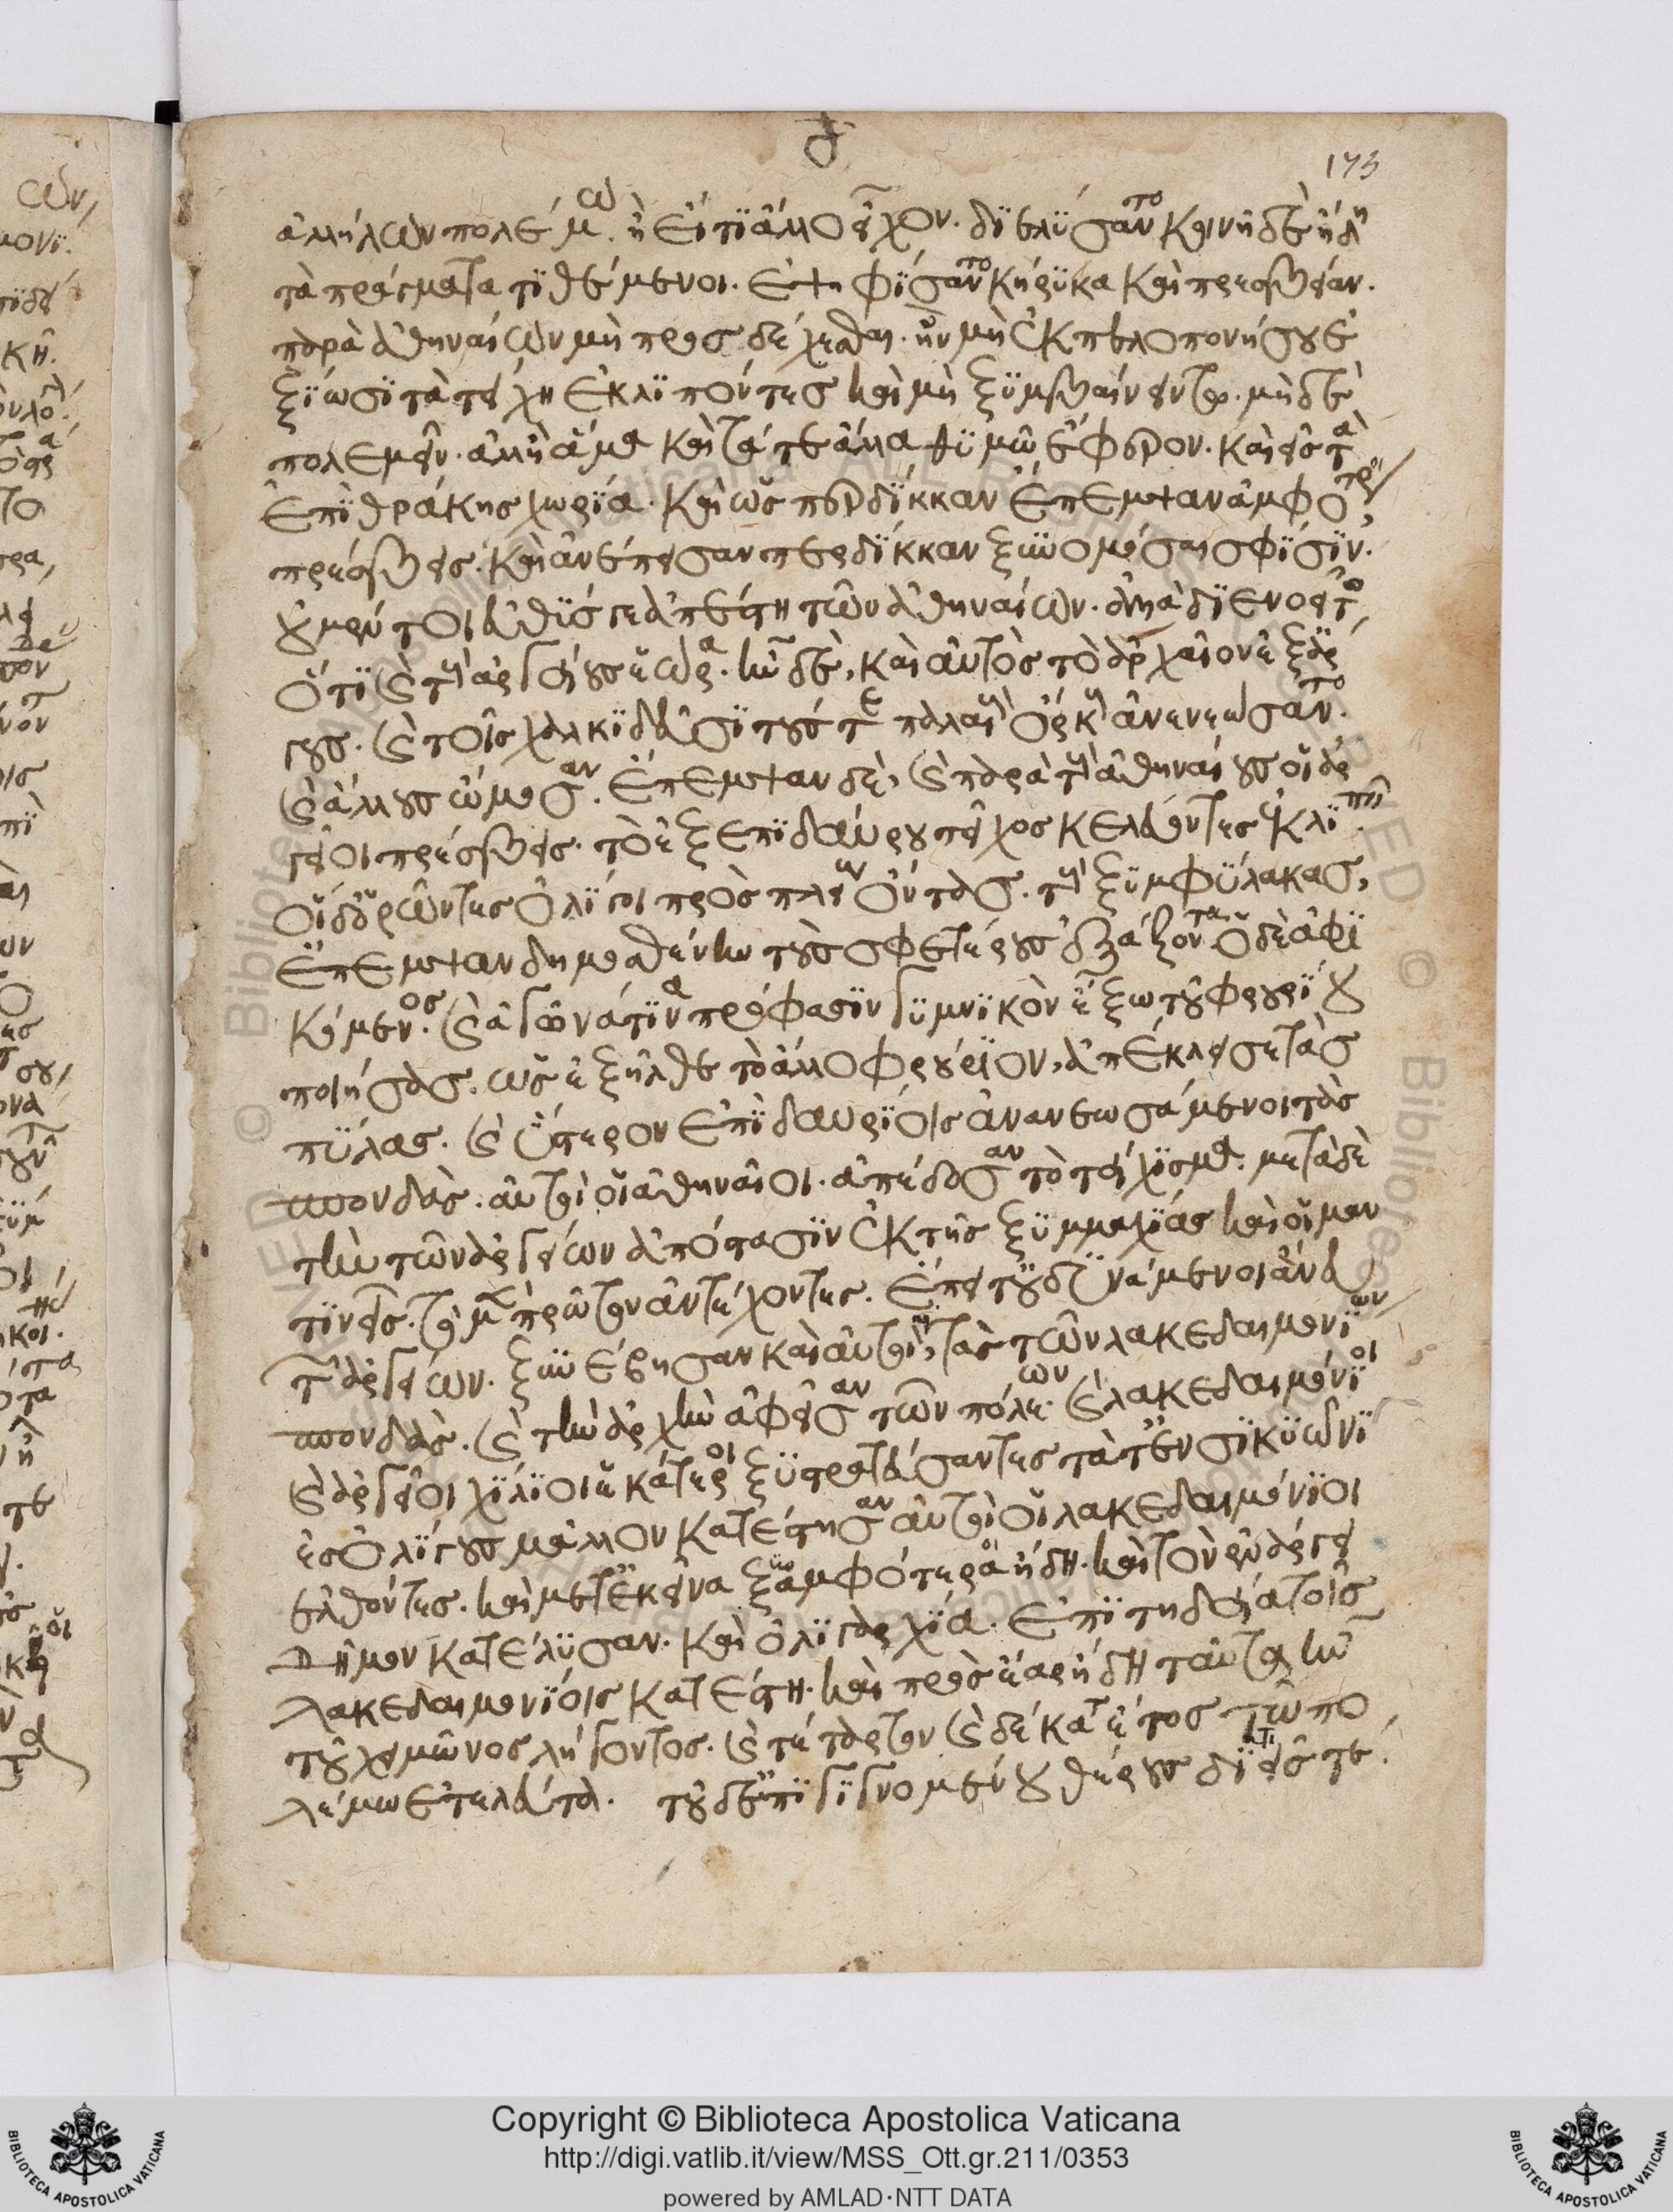 ἀλλήλων πολέμω. ἢ εἴ τϊ ἄλλο εἶχον. δϊελϋσαντο κοινῆ δὲ ἤδη
τὰ πράγματα τϊθέμενοι. ἐψηφϊσαντο κήρϋκα καὶ πρεσβείαν.
παρὰ ἀθηναίων μὴ προσδέχεσθαι. ἢν μὴ ἐκ πελοπονήσου ἐ
ξϊωσϊ τὰ τείχη ἐκλϊπόντες καὶ μὴ ξϋμβαίνειν τω. μὴδὲ
πολεμεῖν. ἀλλ' ἢ ἅμα καὶ τά τε ἄλλα θϋμῶ ἔφερον. καὶ εἰς τὰ
ἐπϊ θράκης χωρϊα. καὶ ὡς περδϊκκαν ἔπεμψαν ἀμφότεροι
πρέσβεις. καὶ ἀνέπεισαν περδϊκκαν ξϋνομόσαι σφϊσϊν.
οὐ μέντοι εὐθϋς γε ἀπέστη τῶν ἀθηναίων. ἀλλὰ δϊενοεῖτο,
ὅτϊ καὶ τοὺς ἀργείους ἑώρα. ἦν δὲ, καὶ αὐτὸς τὸ ἀρχαῖον ἐξ ἄρ
γους. καὶ τοῖς χαλκϊδεῦσϊ τούς τε παλαιοὺς ὅρκους ἀνενεώσαντο.
καὶ ἄλλους ὤμοσαν. ἔπεμψαν δὲ, καὶ παρὰ τοὺς ἀθηναίους οἱ ἀρ
γεῖοι πρέσβεις. τὸ ἐξ ἐπϊδαύρου τεῖχος κελεύοντες ἐκλϊπεῖν.
οἱ δ' ὁρῶντες ὀλϊγοι πρὸς πλείους ὄντας. τοὺς ξϋμφϋλακας,
ἔπεμψαν δημοσθένην τοὺς σφετέρους ἐξάξοντα. ὁ δὲ ἀφϊ
κόμενος. καὶ ἀγῶνά τϊνα πρόφασϊν γϋμνϊκὸν ἔξω τοῦ φρουρϊου
ποιήσας. ὡς ἐξῆλθε τὸ ἄλλο φρούρϊον, ἀπέκλεισε τὰς
πϋλας. καὶ ὕστερον ἐπϊδαυρϊοις ἀνανεωσάμενοι τὰς
σπονδὰς. αὐτοὶ οἱ ἀθηναῖοι. ἀπέδοσαν τὸ τείχϊσμα. μετὰ δὲ
τὴν τῶν ἀργείων ἀπόστασϊν ἐκ τῆς ξϋμμαχϊας καὶ οἱ μαν
τϊνεῖς. τὸ μὲν πρῶτον ἀντέχοντες. ἔπειτ' οὐ δϋνάμενοι ἄνευ
τῶν ἀργείων. ξϋνέβησαν καὶ αὐτοὶ τοῖς τῶν λακεδαιμονϊων
σπονδὰς. καὶ τὴν ἀρχὴν ἀφεῖσαν τῶν πόλεων. καὶ λακεδαιμόνϊοι
καὶ ἀργεῖοι χϊλϊοι ἑκάτεροι ξϋστρατεύσαντες τὰ τ' ἐν σϊκϋωνϊ
ἐς ὀλϊγους μᾶλλον κατέστησαν αὐτοὶ οἱ λακεδαιμόνϊοι
ἐλθόντες. καὶ μετ' ἐκεῖνα ξϋναμφότερα ἤδη. καὶ τὸν ἐν ἄργει
δῆμον κατέλϋσαν. καὶ ὀλϊγαρχϊα. ἐπϊτηδεία τοῖς
λακεδαιμονϊοις κατέστη. καὶ πρὸς ἔαρ ἤδη ταῦτα ἦν
τοῦ χειμῶνος λήγοντος. καὶ τέταρτον καὶ δέκατ' ἔτος τῶ πο
λέμω ἐτελεύτα. τοῦ δ' ἐπϊγϊγνομένου θέρους δϊεῖς τε.